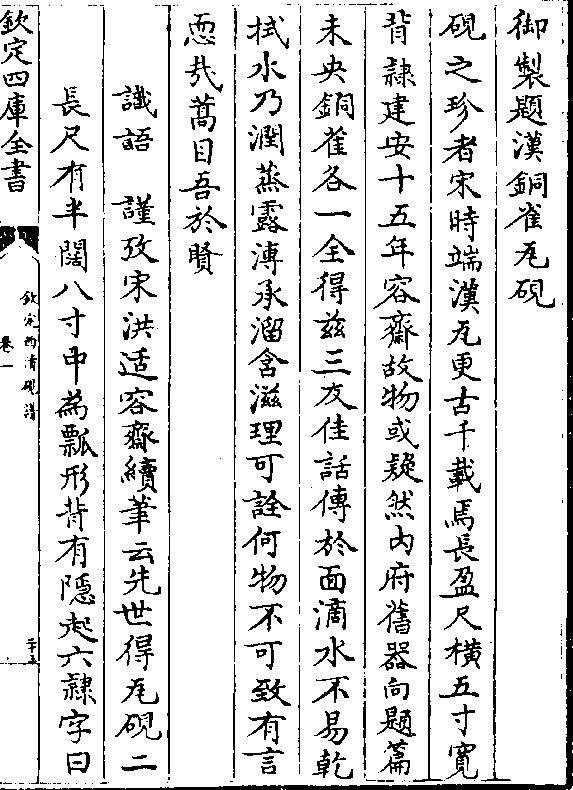 御製題漢銅雀瓦硯
硯之珍者宋時端漢瓦更古千載焉長盈尺橫五寸寛
背隷建安十五年容齋故物或疑然内府舊器向題篇
未央銅雀各一全得兹三友佳話傳於面滴水不易乾
拭水乃潤蒸露漙承溜含滋理可詮何物不可致有言
恧㢤蒿目吾於賢
識語 謹攷宋洪适容齋續筆云先世得瓦硯二
長尺有半闊八寸中為瓢形背有隠起六隷字曰
欽定四庫全書
欽定西清硯譜
卷一
二十五